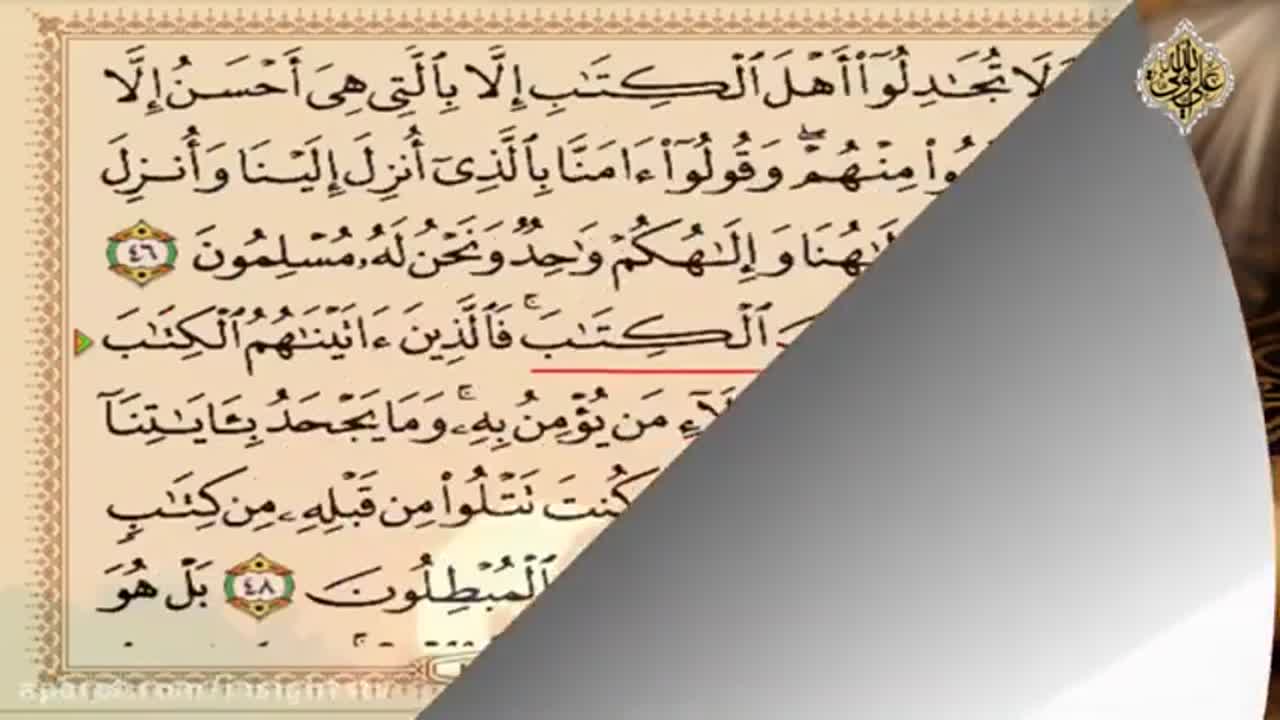 وَلَا تُجَـٰدِلُوٓا۟ أَهْلَ ٱلْكِتَـٰبِ إِلَّا بِٱلَّتِى هِىَ أَحْسَنُ إِلَّا
مِنْهُمْ ۖ وَقُولُوٓا۟ ءَامَنَّا بِٱلَّذِىٓ أُنزِلَ إِلَيْنَا وَأُنزِلَ
وَإِلَـٰهُكُمْ وَٰحِدٌ وَنَحْنُ لَهُۥ مُسْلِمُونَ ٤٦
ٱلْكِتَـٰبَ ۚ فَٱلَّذِينَ ءَاتَيْنَـٰهُمُ ٱلْكِتَـٰبَ
مَن يُؤْمِنُ بِهِۦ ۚ وَمَا يَجْحَدُ بِـَٔايَـٰتِنَآ
كُنتَ تَتْلُوا۟ مِن قَبْلِهِۦ مِن كِتَـٰبٍ
ٱلْمُبْطِلُونَ ٤٨ بَلْ هُوَ
aparat.com/insightstv